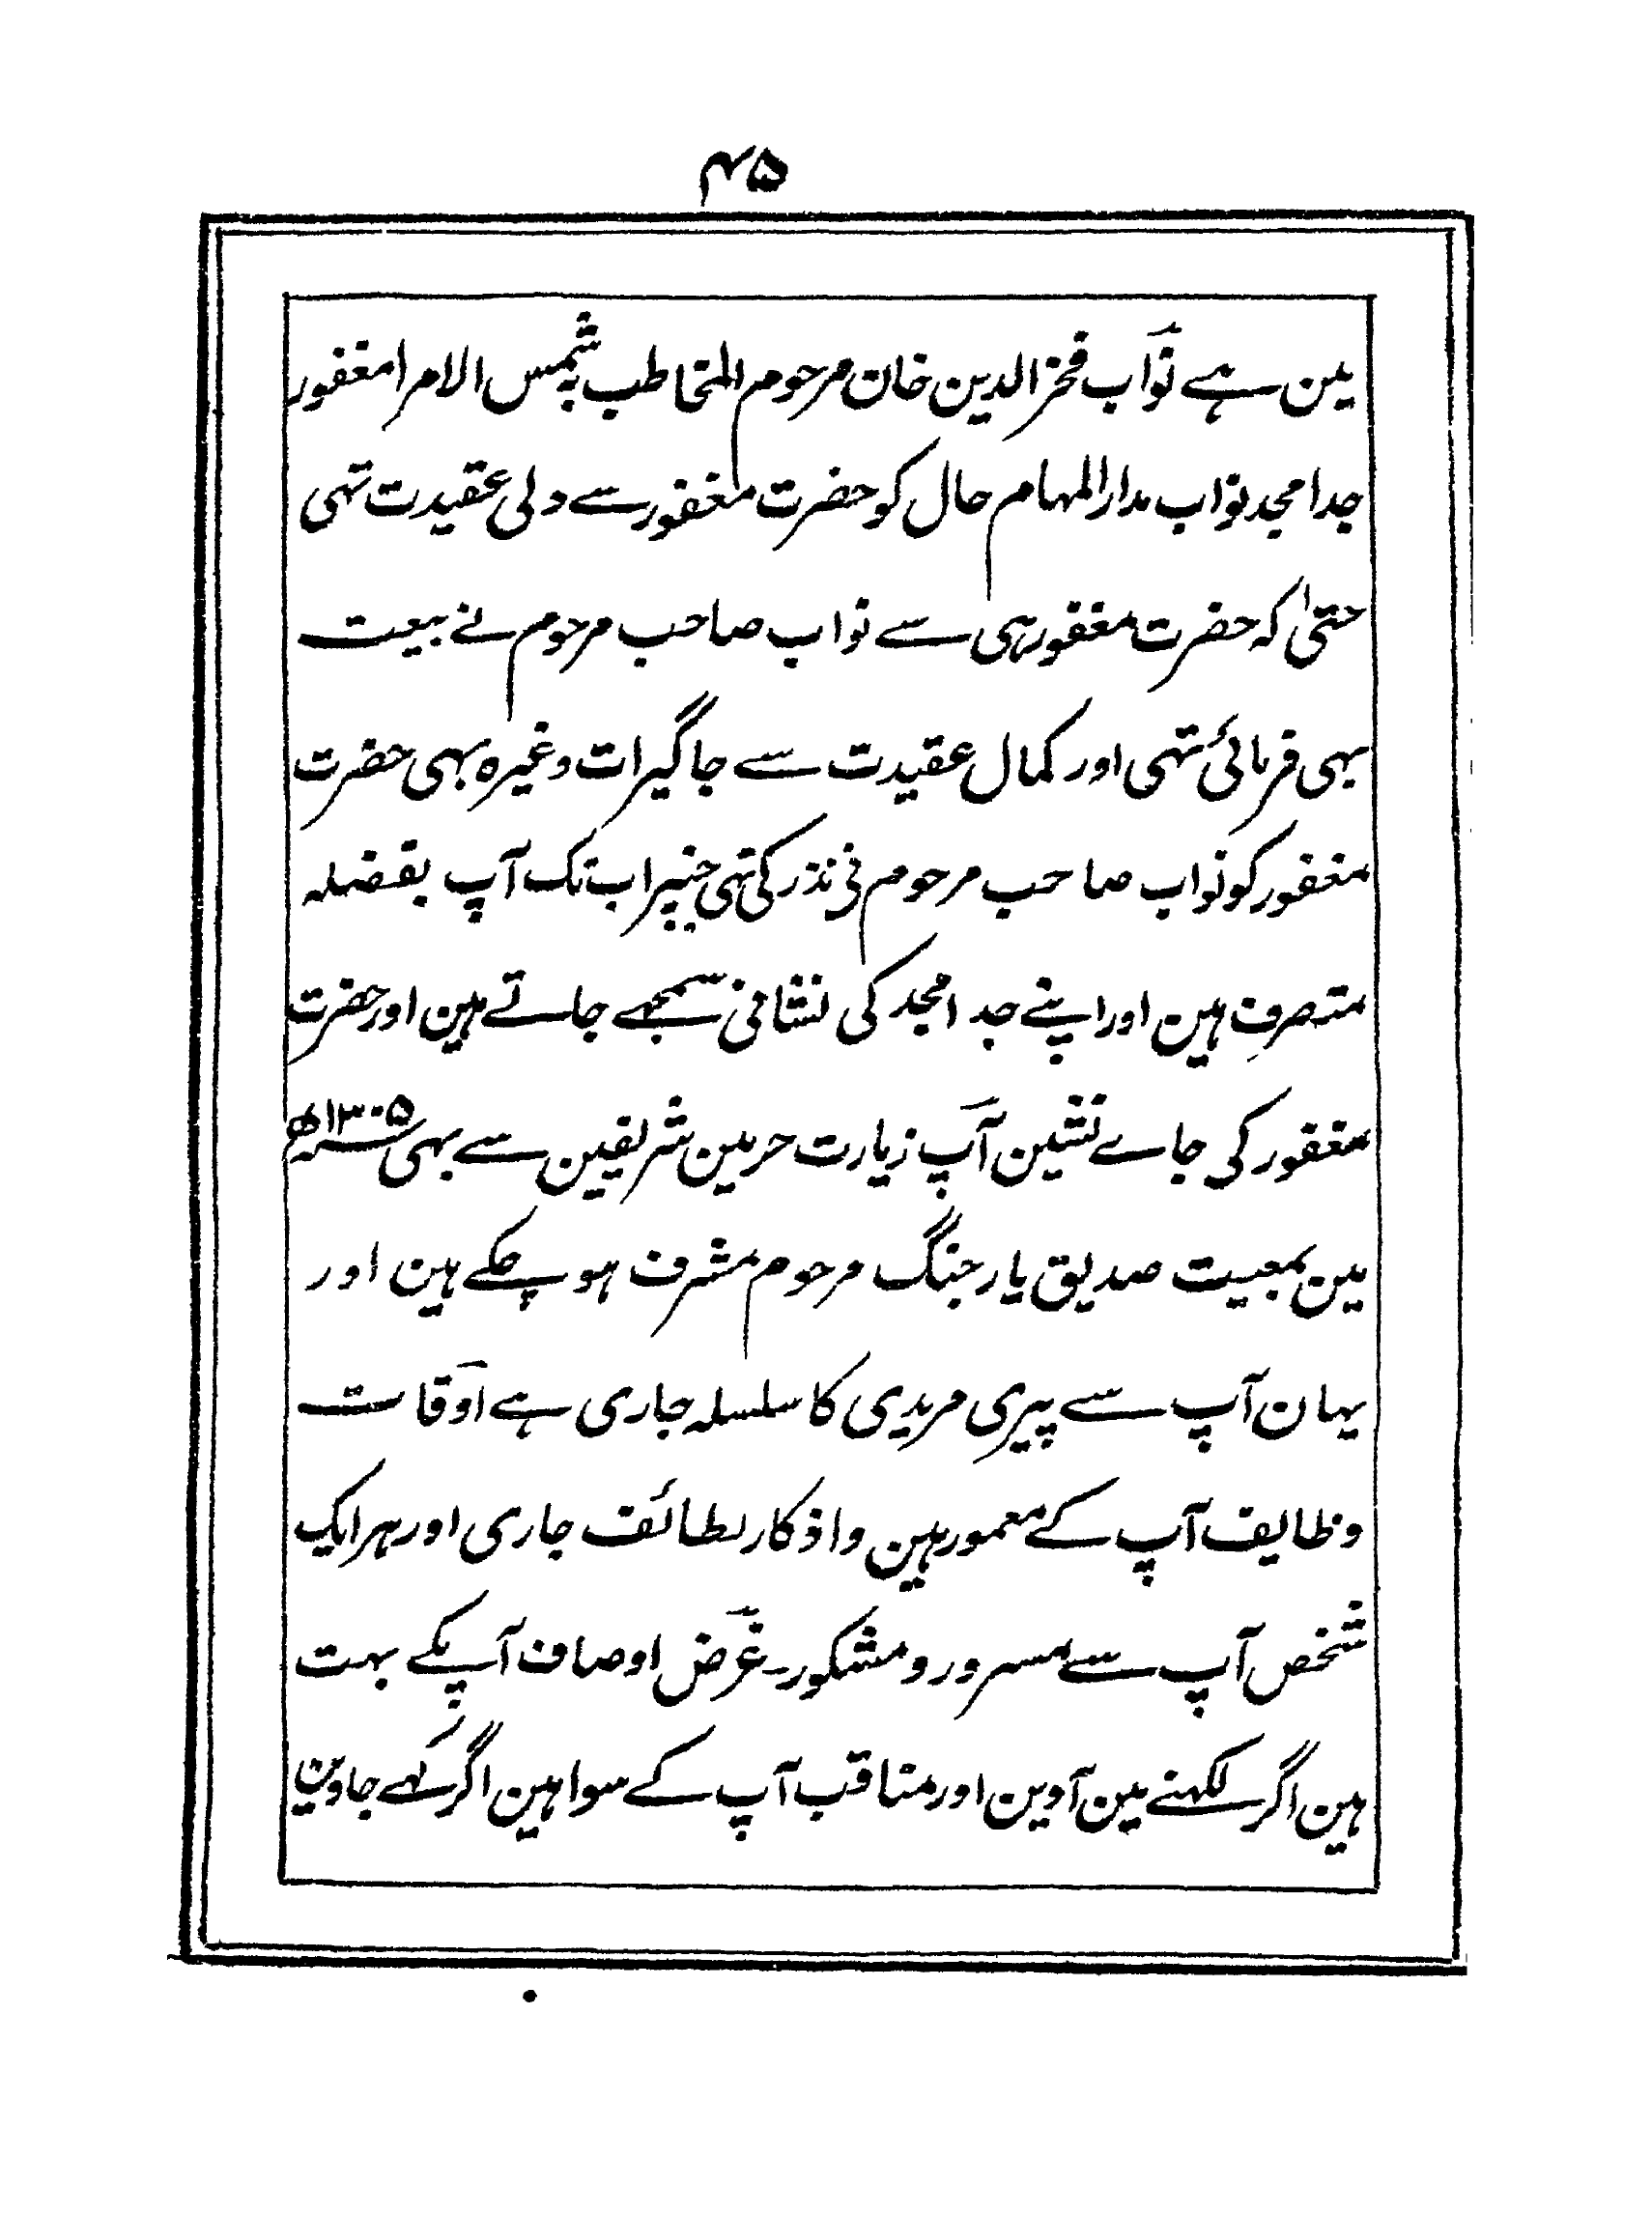 ۴۵
مین ہے نواب فخر الدین خان مرحوم المخاطب بہ شمس الامرا مغفور
جد امجد نواب مدار المہام حال کو حضرت مغفور سے دلی عقیدت تہی
حتیٰ کہ حضرت مغفور ہی سے نواب صاحب مرحوم نے بیعت
بہی فرمائی تہی اور کمال عقیدت سے جاگیرات وغیرہ بہی حضرت
مغفور کو نواب صاحب مرحوم نی نذر کی تہی جنپر اب تک آپ بفضلہ
متصرف ہین اور اپنے جد امجد کی نشانی سمجہے جاتے ہین اور حضرت
مغفور کی جاے نشین آپ زیارت حرمین شریفین سے بہی سنہ ۱۳۰۵ھ
مین بمعیت صدیق یار جنگ مرحوم مشرف ہو چکے ہین اور
یہان آپ سے پیری مریدی کا سلسلہ جاری ہے اوقات
وظایف آپ کے معمور ہین واذکار لطائف جاری اور ہر ایک
شخص آپ سے مسرور و مشکور۔ غرض اوصاف آپکے بہت
ہین اگر لکہنے مین آوین اور مناقب آپ کے سوا ہین اگر کہے جاوین